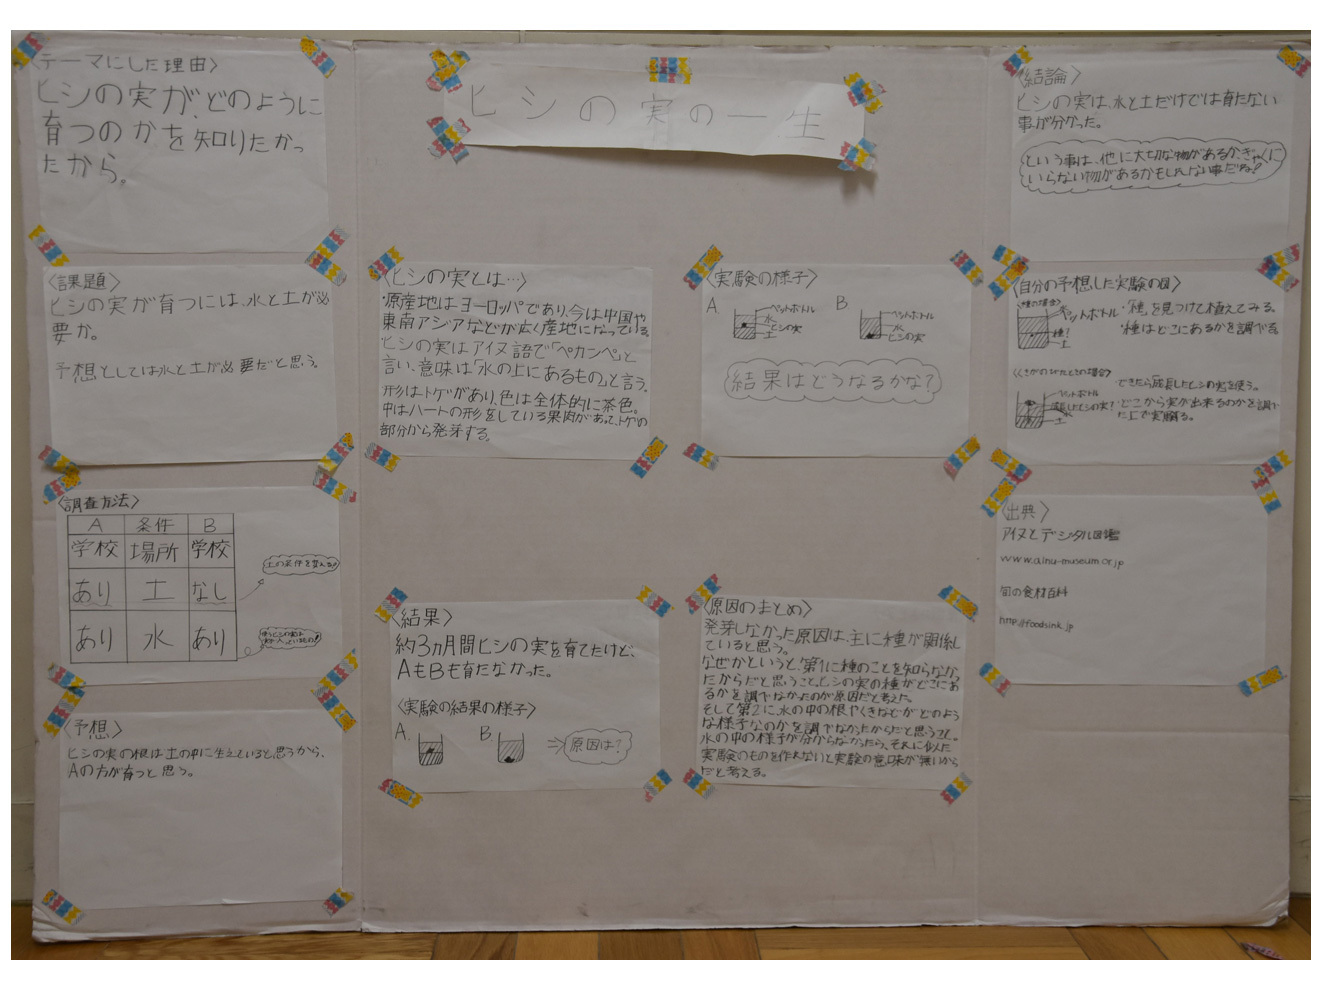 ヒシの実の一生
〈テーマにした理由〉
ヒシの実が、どのように
育つのかを知りたかっ
たから。
〈課題〉
ヒシの実が育つには、水と土が必
要か。
予想としては水と土が必要だと思う。
〈調査方法〉
A 条件 B
学校 場所 学校
あり 土 なし
あり 水 あり
土の条件を変える!
〈予想〉
ヒシの実の根は土の中に生えていると思うから、
Aの方が育つと思う。
〈ヒシの実とは…〉
・原産地はヨーロッパであり、今は中国や
東南アジアなどが広く産地になっている。
ヒシの実はアイヌ語で「ペカンペ」と
言い、意味は「水の上にあるもの」と言う。
形はトゲがあり、色は全体的に茶色。
中はハートの形をしている果肉があって、トゲの
部分から発芽する。
〈実験の様子〉
A
ペットボトル
水
ヒシの実
土
B
ペットボトル
水
ヒシの実
結果はどうなるかな?
〈結果〉
約3ヵ月間ヒシの実を育てたけど、
AもBも育たなかった。
〈実験の結果の様子〉
A. B. ⇒ 原因は?
〈原因のまとめ〉
発芽しなかった原因は、主に種が関係し
ていると思う。
なぜかというと、第1に種のことを知らなかっ
たからだと思うこと。ヒシの実の種がどこにあ
るかを調べなかったのが原因だと考えた。
そして第2に、水の中の根やくきなどがどのよう
な様子なのかを調べなかったからだと思う
水の中の様子が分からなかったら、それに似た
実験のものを作れないと実験の意味が無いから
だと考える。
〈結論〉
ヒシの実は、水と土だけでは育たない
事が分かった。
という事は、他に大切な物があるか、ぎゃくに
いらない物があるかもしれない事だね!
〈自分の予想した実験の図〉
〈種の場合〉
水
ペットボトル
種?
土
・「種」を見つけて植えてみる。
・種はどこにあるかを調べる
ペットボトル
成長したヒシの実?
水
土
・できたら「成長したヒシの実」を使う。
・どこから実が出来るのかを調べ
た上で実験する。
〈出典〉
アイヌとデジタル図鑑
www.ainu-museum.or.jp
旬の食材百科
http://foodsink.jp